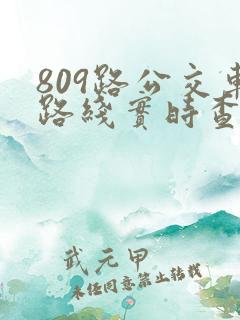 809路公交車
路綫實時查
武元甲
未经同意禁止转载